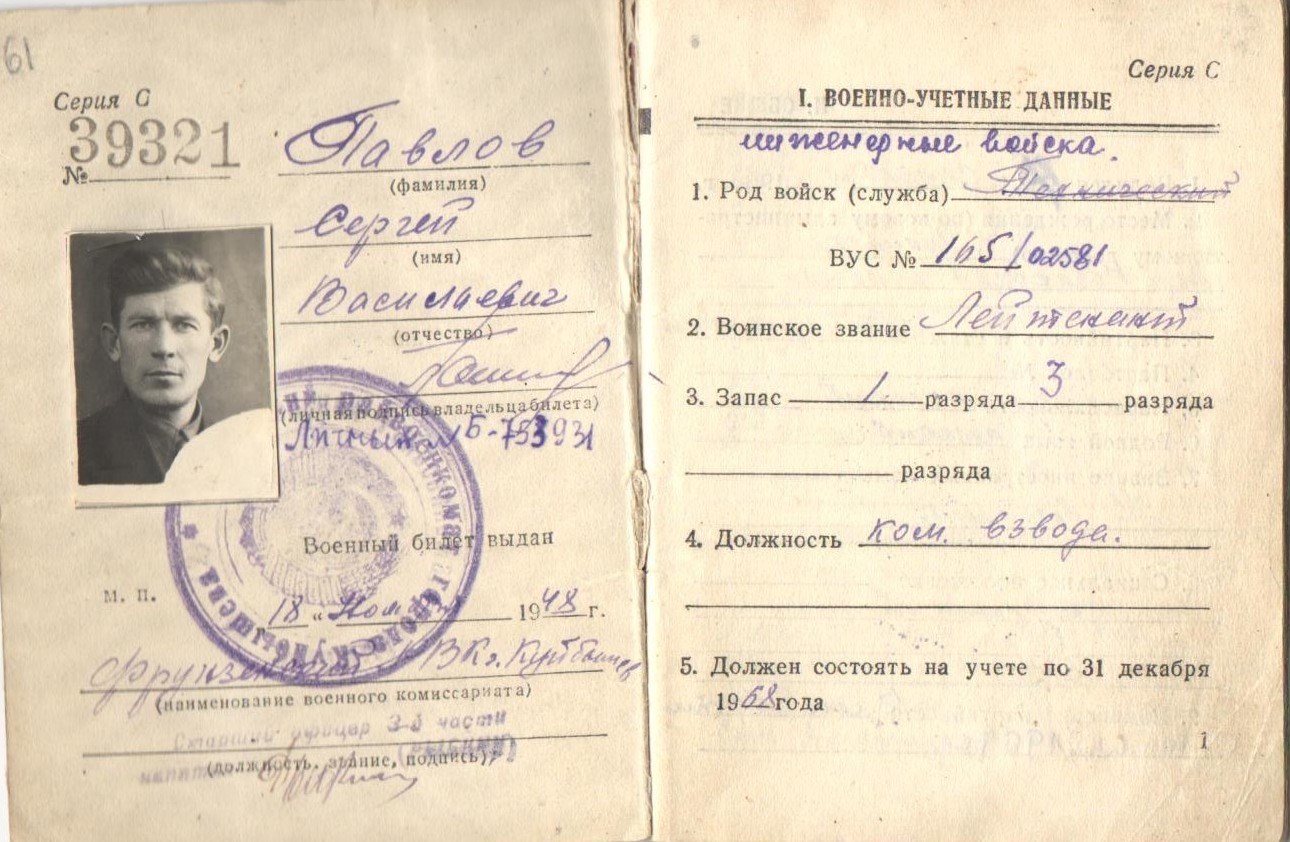 61
Серия С
39321
№
Павлов
(фамилия)
Сергей
(имя)
Васильевич
(отчество)
(личная подпись владельца билета)
Личный № Б-753931
Военный билет выдан
м. п.
18 " 1948 г.
Фрунзенский РВК г. Куйбышев
(наименование военного комиссариата)
Старший офицер 3-й части
(должность, звание, подпись)
города Куйбышева
Серия С
I. ВОЕННО-УЧЕТНЫЕ ДАННЫЕ
инженерные войска.
1. Род войск (служба) Технический
ВУС № 165/02581
2. Воинское звание Лейтенант
3. Запас 1 разряда 3 разряда
разряда
4. Должность ком. взвода.
5. Должен состоять на учете по 31 декабря
1968 года
1